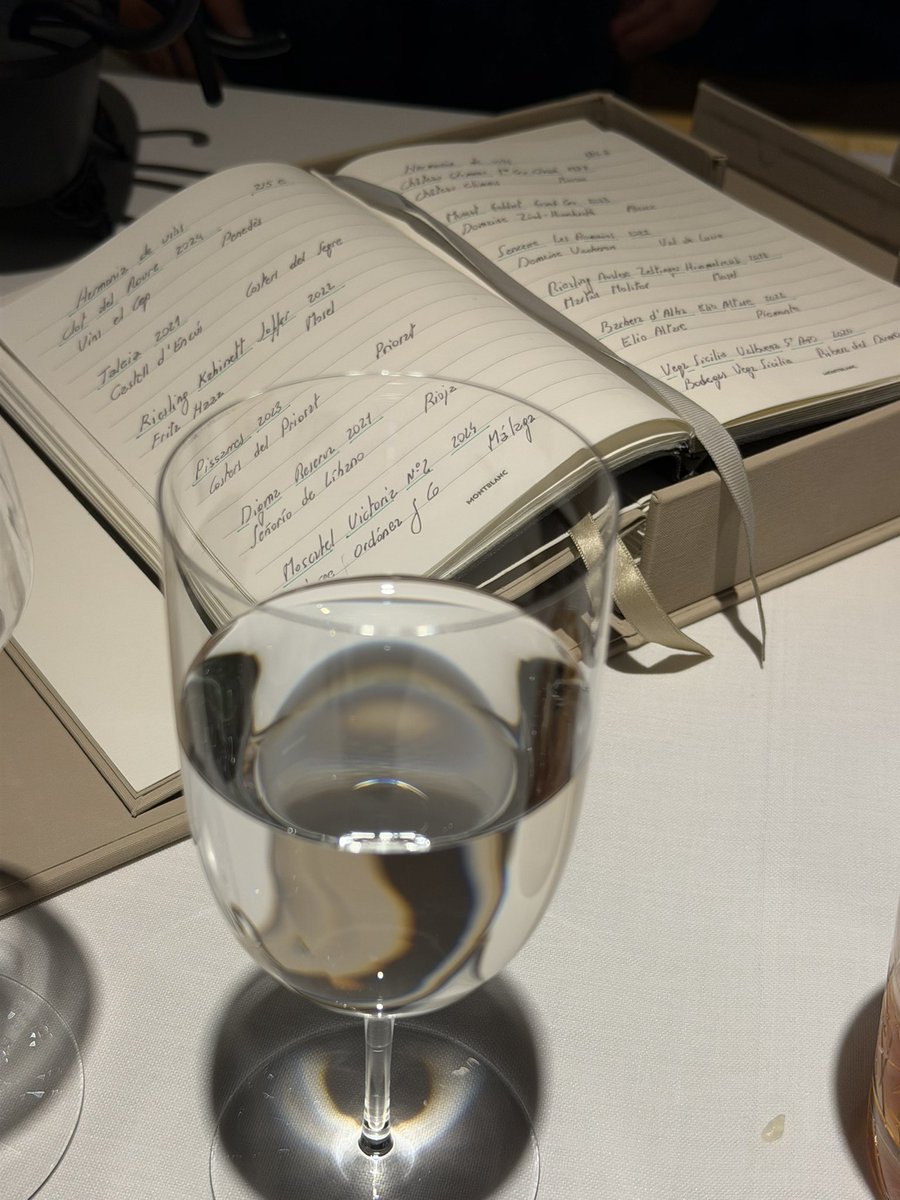 215 €
Harmonia de vins
Clot del Roure 2024
Vins el Cep Penedès
Taleia 2021
Castell d'Encús Costers del Segre
Riesling Kabinett 2022
Fritz Haag Mosel
Pissarres 2023
Costers del Priorat Priorat
Digma Reserva 2021
Señorío de Líbano Rioja
Moscatel Victoria Nº2 2024
Jorge Ordóñez & Co Málaga
MONTBLANC
Harmonia de vins
Château Climens 1er Cru
Château Climens
Muscat Grand Cru
Domaine Zind-Humbrecht Alsace
Sancerre Les Romains
Domaine Vacheron Val de Loire
Riesling Auslese Zeltinger Himmelreich
Markus Molitor Mosel
Barbera d'Alba Elio Altare 2022
Elio Altare Piemonte
Vega Sicilia Valbuena 5º Año 2020
Bodegas Vega Sicilia Ribera del Duero
MONTBLANC